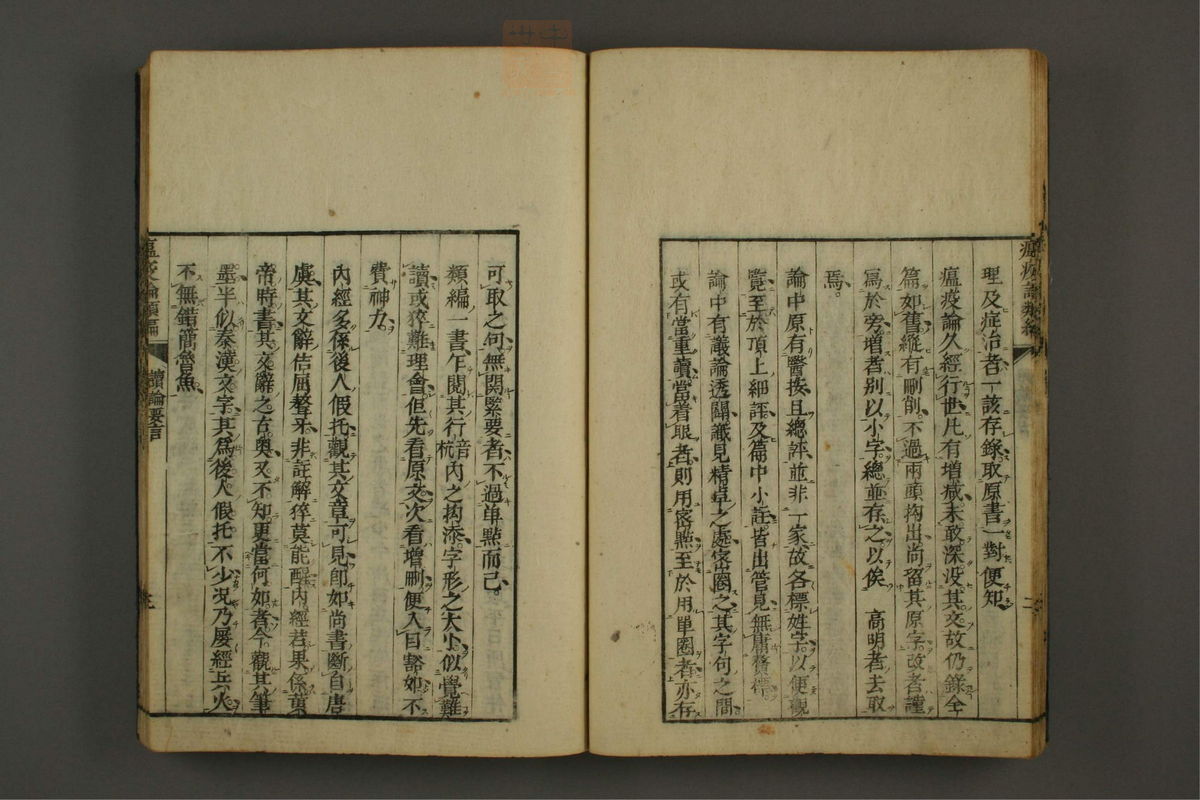 瘟疫論類編
二
理及症治者一該存錄取原書一對便知
瘟疫論久經行世凡有增减未敢深没其文故仍錄全
篇如舊縱有刪削不過兩頭抅出尚留其原字改者謹
爲於旁增者別以小字總並存之以俟 高明者去取
焉
論中原有醫按且總評並非一家故各標姓字以便觀
覽至於頂上細評及篇中小註皆出管見無庸贅標
論中有議論透闢識見精卓之處密圈之其字句之間
或有當重讀當着眼者則用密㸃至於用單圈者亦存
可取之句無關緊要者不過单㸃而已
類編一書乍閱其行音杭内之抅添字形之大小似覺難
讀或猝難理會但先看原文次看增刪便入目豁如不
費神力
內經多係後人假托觀其文章可見卽如尚書斷自唐
虞其文辭佶屈聱牙非註解猝莫能醒內經若果係黃
帝時書其文辭之古奧又不知更當何如者今觀其筆
墨半似秦漢文字其爲後人假托不少况乃屡經兵火
不無錯簡魯魚
瘟疫論類編
讀論要言